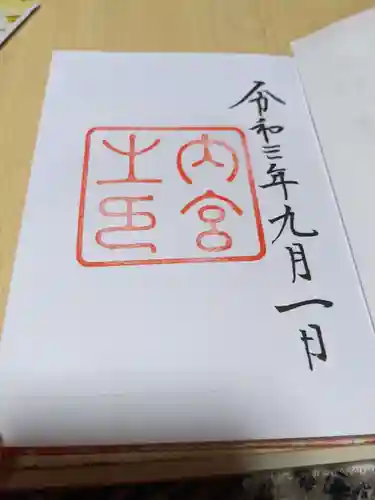 令和三年九月一日
内宮
之印